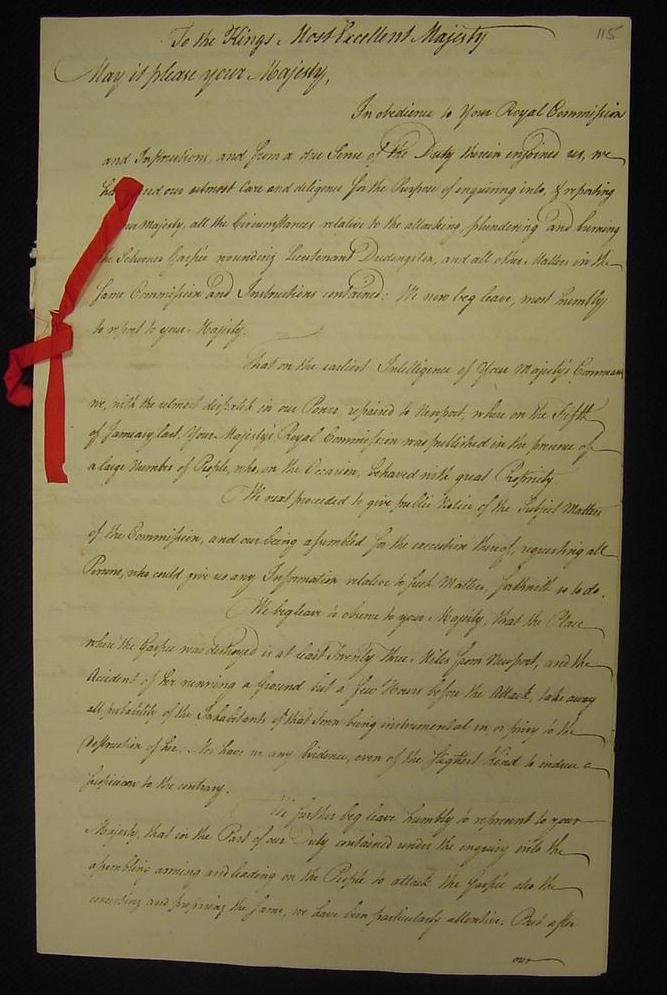 115
To the Kings Most Excellent Majesty
May it please your Majesty,
In obedience to Your Royal Commission
and Instructions, and from a due Sense of the Duty therein enjoined us, we
have used our utmost Care and diligence for the Purpose of enquiring into, & reporting
your Majesty, all the Circumstances relative to the attacking, plundering and burning
the Schooner Gaspee wounding Lieutenant Dudingston, and all other Matters in the
same Commission and Instructions contained: We now beg leave, most humbly
to report to your Majesty.
That on the earliest Intelligence of Your Majesty's Comman
we, with the utmost dispatch in our Power, repaired to Newport, where on the Fifth
of January last, Your Majesty's Royal Commission was published in the presence of
a large Number of People, who, on the Occasion, behaved with great Propriety
We next proceeded to give public Notice of the Subject Matter
of the Commission, and our being assembled for the execution thereof, requesting all
Persons, who could give us any Information relative to such Matters, forthwith so to do.
We beg leave to observe to your Majesty, that the Place
where the Gaspee was destroyed is at least Twenty three Miles from Newport, and the
Accident of her running a Ground but a few Hours before the Attack, take away
all probability of the Inhabitants of that Town being instrumental in, or privy to the
Destruction of her. Nor have we any Evidence, even of the slightest Kind to induce a
suspicion to the contrary.
We further beg leave humbly to represent to your
Majesty, that in the Part of our Duty contained under the enquiry into the
assembling arming and leading on the People to attack the Gaspee also the
concerting and preparing the same, we have been particularly attentive. But after
our